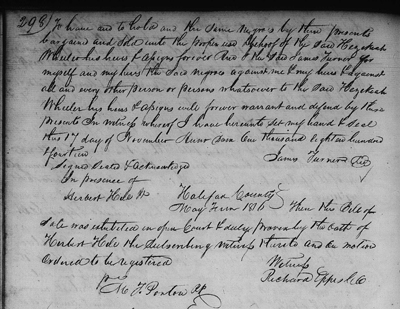 298) To have and to hold and the same Negroes by these presents
bargained and sold unto the proper use & behoof of the said Hezekiah
Wheeler his heirs & assigns forever And I the said James Turner for
myself and my heirs the said Negroes against me & my heirs & against
all and every other person or persons whatsoever to the said Hezekiah
Wheeler his heirs & assigns will forever warrant and defend by these
presents In witness whereof I have hereunto set my hand & seal
this 17 day of November Anno Dom One thousand Eighteen hundred
& fourteen James Turner (Seal)
Signed Sealed & Acknowledged
In presence of
Herbert Hill Halifax County
May Term 1816 Then this Bill of
Sale was exhibited in open Court & duly proven by the oath of
Herbert Hill the Subscribing witness thereto and on motion
ordered to be registered Witness
Richard Eppes